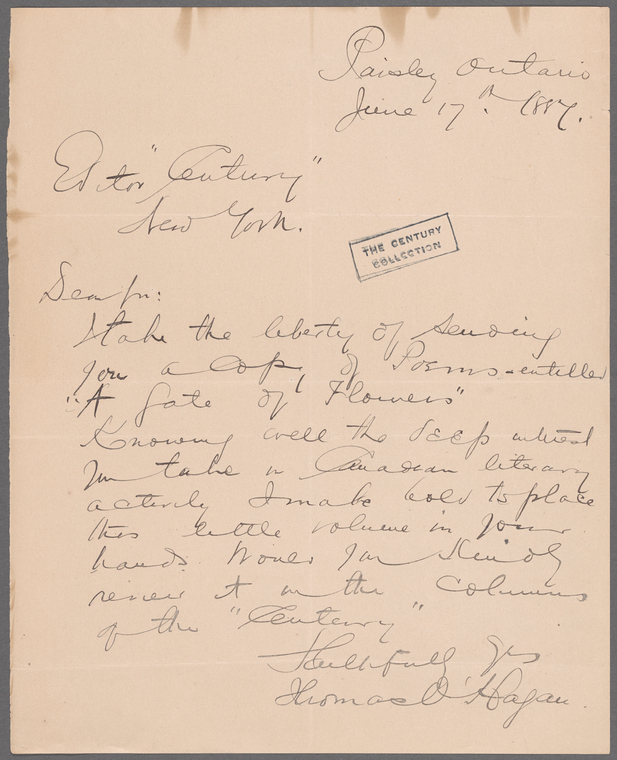 Paisley Ontario
June 17th 1887.
Editor "Century"
New York.
THE CENTURY
COLLECTION
Dear Sir:
I take the liberty of sending
you a copy of Poems - entitled
"A Gate of Flowers"
Knowing well the deep interest
you take in Canadian literary
activity I make bold to place
this little volume in your
hands. Would you kindly
review it in the columns
of the "Century"
Faithfully yrs
Thomas O'Hagan.